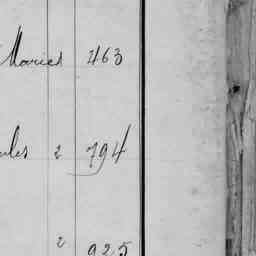 Maries 463
ules 2 794
2 925